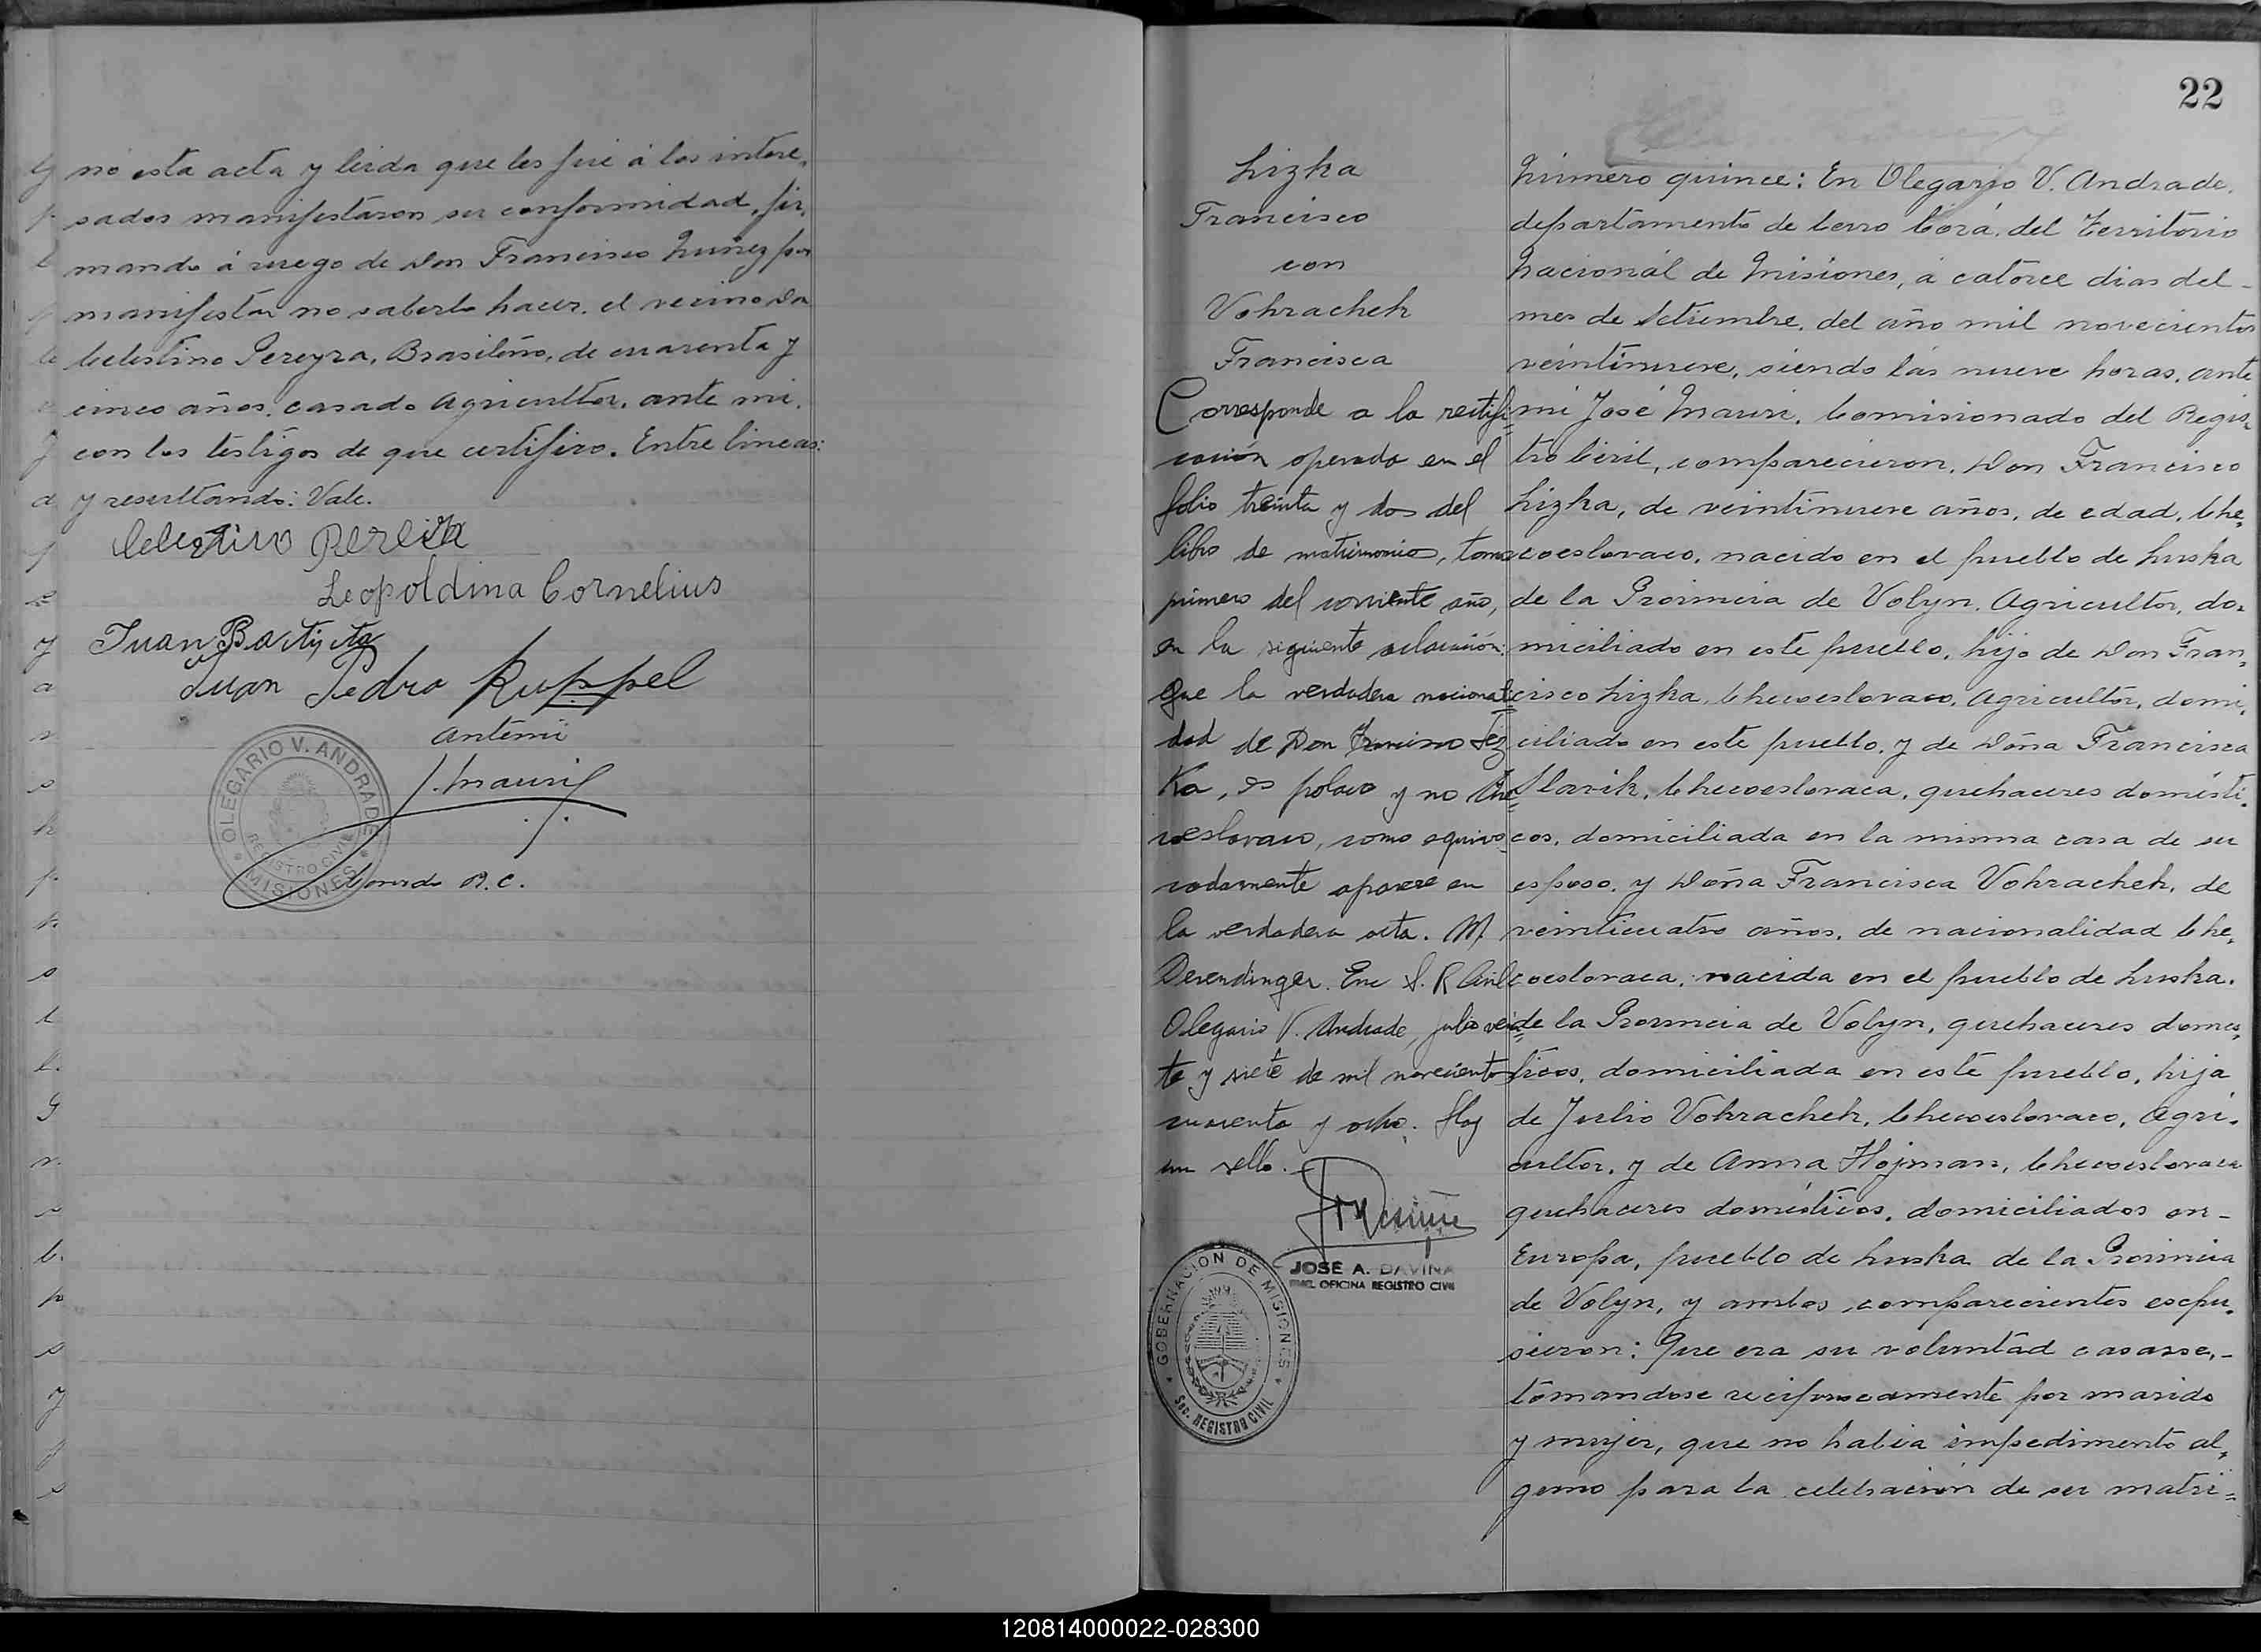 nó esta acta y leida que les fué á los intere,
sados manifestaron su conformidad, fir,
mando á ruego de Don Francisco Nuñez por
manifestar no saberlo hacer, el vecino Don
Celestino Pereyra, Brasileño, de cuarenta y
cinco años, casado Agricultor, ante mi,
con los testigos de que certifico. Entre lineas:
y resultando: Vale.
Celestino Pereira
Leopoldina Cornelius
Juan Bautista
Juan Pedro Ruppel
antemi
J. Mauri
OLEGARIO V. ANDRADE
REGISTRO CIVIL
MISIONES
R. C.
22
Lizka
Francisco
con
Vohrachek
Francisca
Corresponde a la rectifi
cación operada en el
folio treinta y dos del
libro de matrimonios, tomo
primero del corriente año,
en la siguiente aclaración:
Que la verdadera nacionali
dad de Don Francisco Liz
Ka, es polaco y no Che
coeslovaco, como equivo
cadamente aparece en
la verdadera acta. M.
Derendinger. Enc S. R Civil
Olegario V. Andrade, julio vein
te y siete de mil novecientos
cuarenta y ocho. Hay
un sello.
JOSÉ A. DAVIÑA
OFICINA REGISTRO CIVIL
GOBERNACION DE MISIONES
Sec. REGISTRO CIVIL
Número quince: En Olegario V. Andrade,
departamento de Cerro Corá, del Territorio
Nacional de Misiones, á catorce dias del -
mes de Setiembre, del año mil novecientos
veintinueve, siendo las nueve horas, ante
mi José Mauri, Comisionado del Regis,
tro Civil, comparecieron, Don Francisco
Lizka, de veintinueve años, de edad, Che,
coeslovaco, nacido en el pueblo de Luska
de la Provincia de Volyn, Agricultor, do,
miciliado en este pueblo, hijo de Don Fran,
cisco Lizka, Checoeslovaco, Agricultor, domi,
ciliado en este pueblo, y de Doña Francisca
Slavik, Checoeslovaca, quehaceres domésti,
cos, domiciliada en la misma casa de su
esposo, y Doña Francisca Vohrachek, de
veinticuatro años, de nacionalidad Che,
coeslovaca, nacida en el pueblo de Luska,
de la Provincia de Volyn, quehaceres domes,
ticos, domiciliada en este pueblo, hija
de Julio Vohrachek, Checoeslovaco, Agri,
cultor, y de Anna Hojman, Checoeslovaca
quehaceres domésticos, domiciliados en -
Europa, pueblo de Luska de la Provincia
de Volyn, y ambos comparecientes espu,
sieron: Que era su voluntad casarse, -
tomandose reciprocamente por marido
y mujer, que no habia impedimento al,
guno para la celebración de su matri=
120814000022-028300